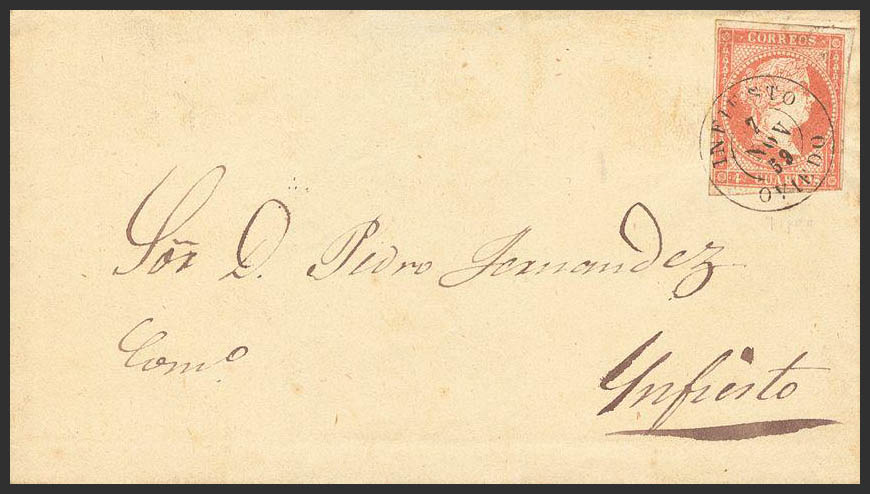 CORREOS
INFIESTO
7
NOV
59
OVIEDO
4 CUARTOS
Sõr D. Pedro Fernandez
Com.º
Ynfiesto